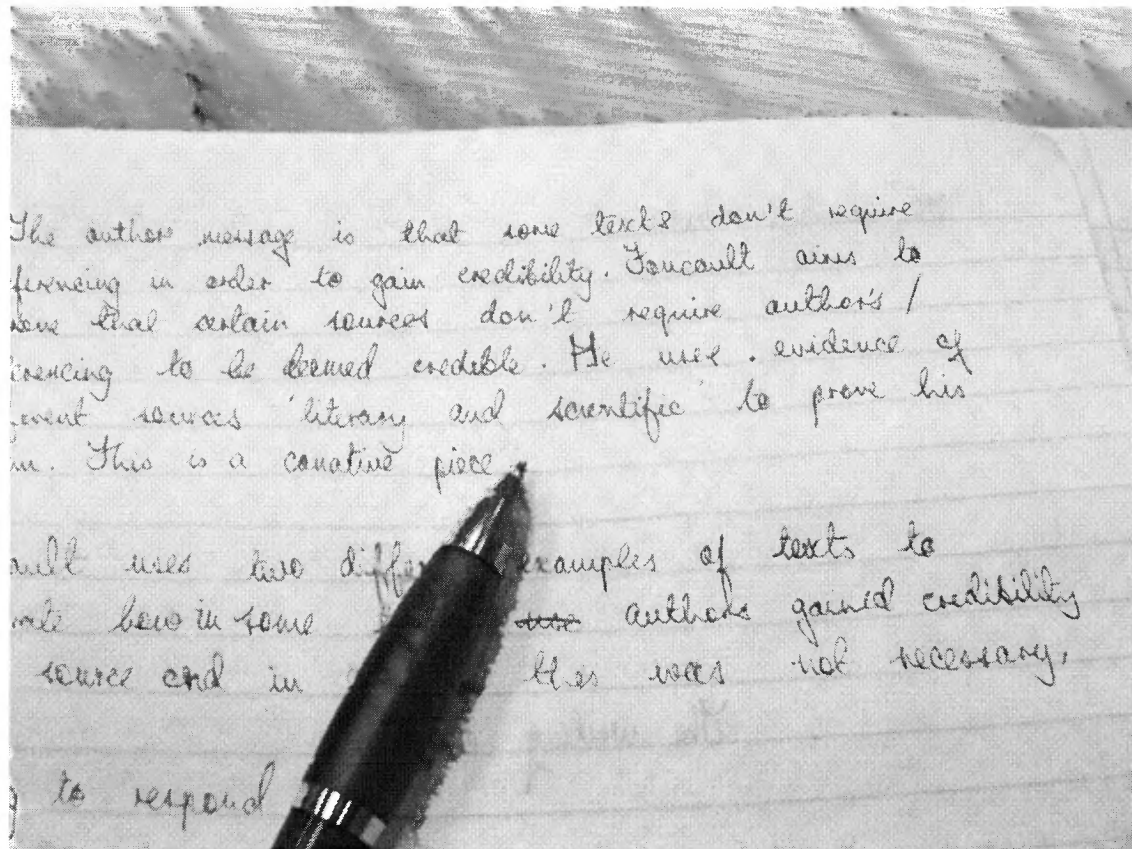 The authors message is that some texts don't require
ferencing in order to gain credibility. Foucault aims to
that certain sources don't require author's /
erencing to be deemed credible. He uses . evidence of
sources 'literary and scientific' to prove his
This is a conative piece
ault uses two differ examples of texts to
how in some use authors gained credibility
source and in this was not necessary.
to respond